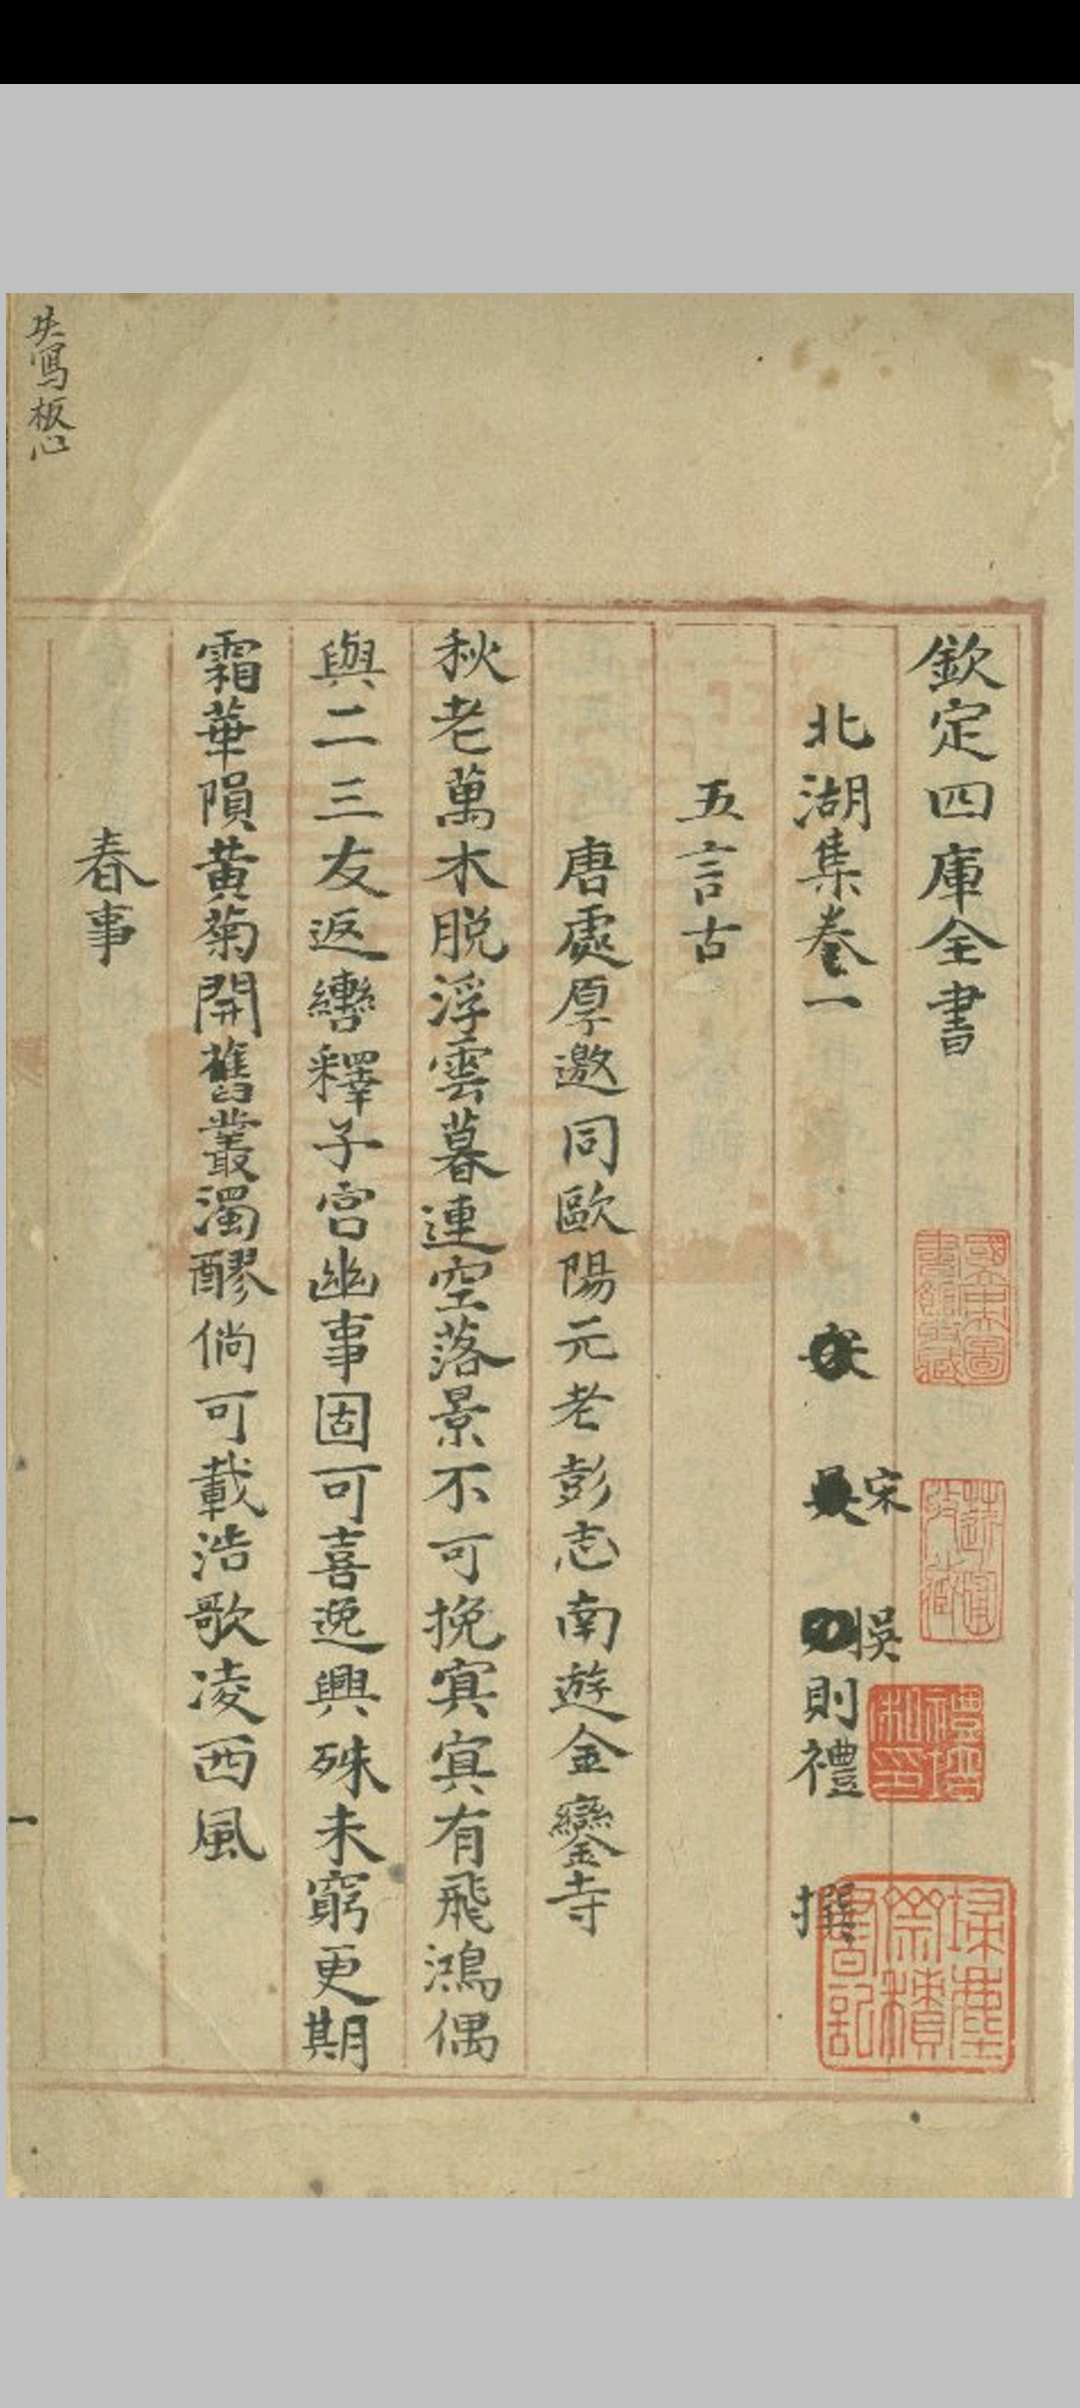 欽定四庫全書
北湖集卷一
宋
吳
則禮
撰
五言古
唐處厚邀同歐陽元老彭志南遊金鑾寺
秋老萬木脱浮雲暮連空落景不可挽寘寘有飛鴻偶
與二三友返轡釋子宮幽事固可喜逸興殊未窮更期
霜華隕黄菊開舊叢濁醪倘可載浩歌凌西風
春事
一
失寫板心